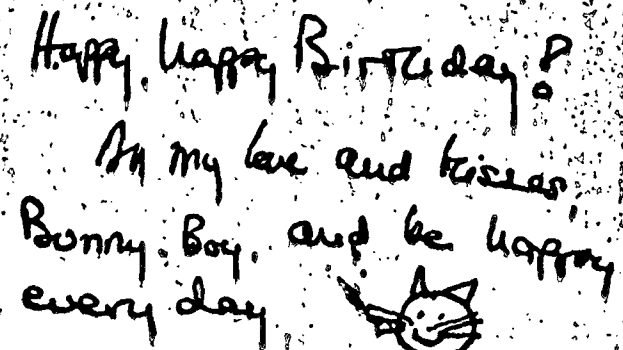 Happy, happy Birthday!
All my love and kisses,
Bunny Boy, and be happy
every day